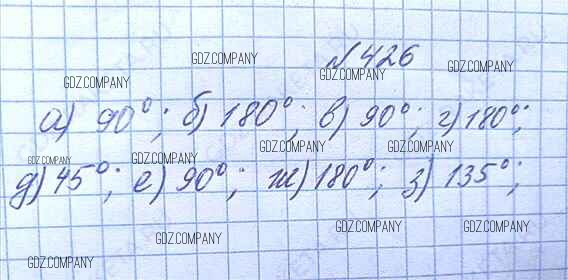 № 426
GDZ.COMPANY GDZ.COMPANY GDZ.COMPANY GDZ.COMPANY
а) 90°; б) 180°; в) 90°; г) 180°;
GDZ.COMPANY GDZ.COMPANY GDZ.COMPANY GDZ.COMPANY
д) 45°; е) 90°; ж) 180°; з) 135°;
GDZ.COMPANY GDZ.COMPANY GDZ.COMPANY GDZ.COMPANY